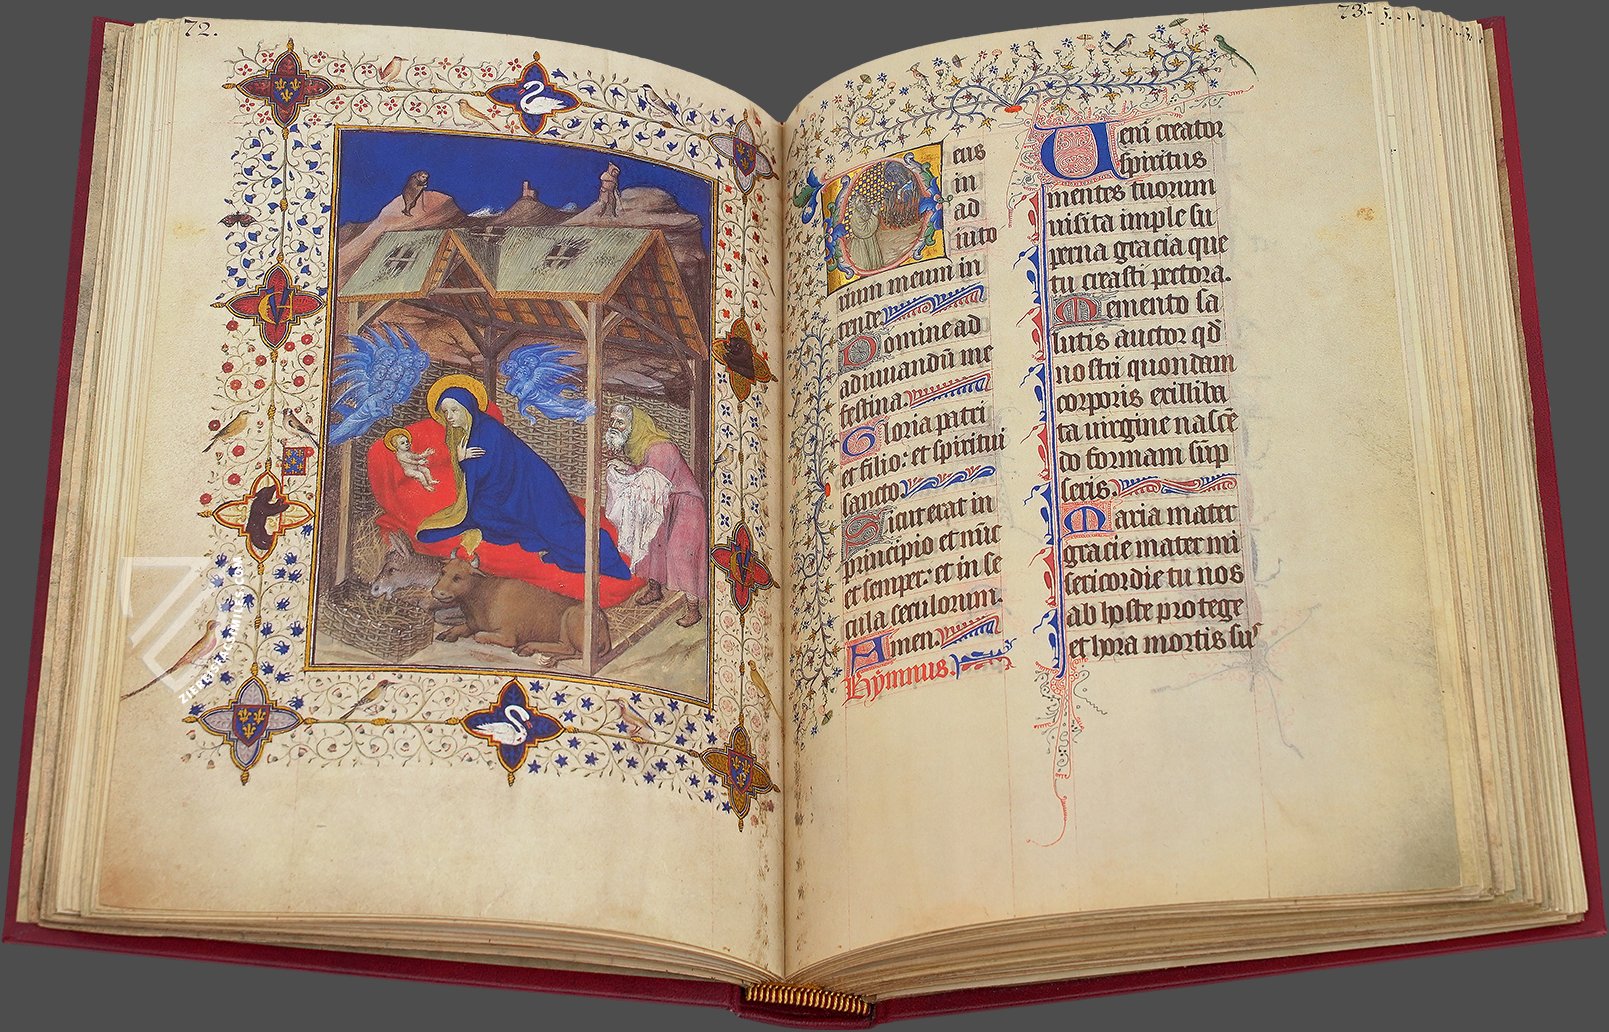 72.
73.
Deus
in
ad
iuto
rium meum in
tende
Domine ad
adiuuandū me
festina.
Gloria patri
et filio: et spiritui
sancto.
Sicut erat in
principio et nūc
et semper: et in se
cula seculorum.
Amen.
Hymnus.
Ueni creator
spiritus
mentes tuorum
uisita imple su
perna gracia que
tu creasti pectora.
Memento sa
lutis auctor qd
nostri quondam
corporis ex illiba
ta uirgine nascē
do formam sūp
seris.
Maria mater
gracie mater mi
sericordie tu nos
ab hoste protege
et hora mortis sus